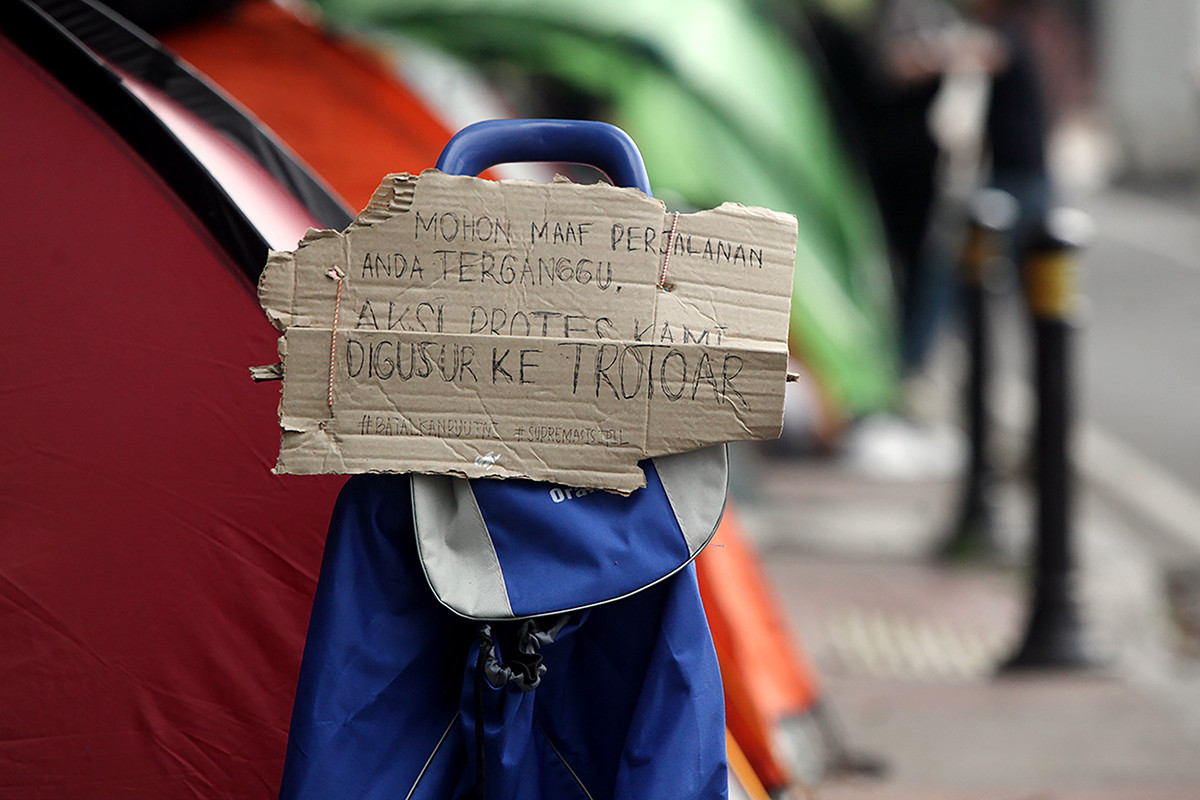 MOHON MAAF PERJALANAN
ANDA TERGANGGU.
AKSI PROTES KAMI
DIGUSUR KE TROTOAR
#BATALKANRUUTNI #SUPREMASISIPIL
ora